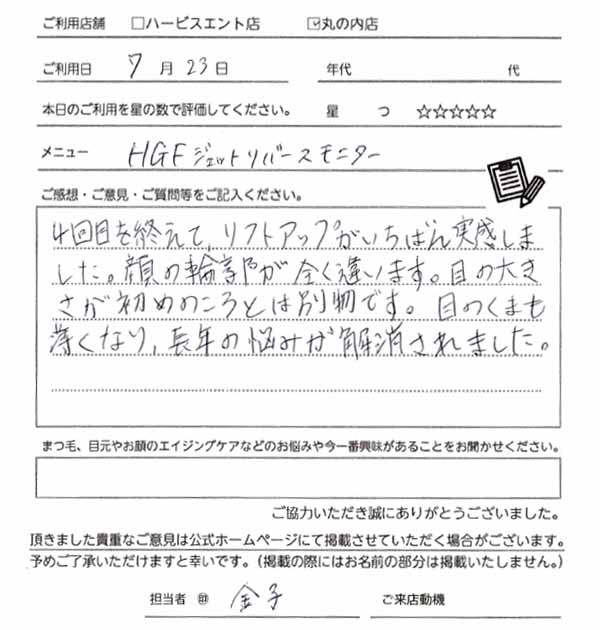 ご利用店舗 □ハービスエント店 ☑丸の内店
ご利用日 7月23日 年代 代
本日のご利用を星の数で評価してください。 星 つ ☆☆☆☆☆
メニュー HGFジェットリバースモニター
ご感想・ご意見・ご質問等をご記入ください。
4回目を終えて、リフトアップがいちばん実感しま
した。顔の輪郭が全く違います。目の大き
さが初めのころとは別物です。目のくまも
薄くなり、長年の悩みが解消されました。
まつ毛、目元やお顔のエイジングケアなどのお悩みや今一番興味があることをお聞かせください。
ご協力いただき誠にありがとうございました。
頂きました貴重なご意見は公式ホームページにて掲載させていただく場合がございます。
予めご了承いただけますと幸いです。（掲載の際にはお名前の部分は掲載いたしません。）
担当者 ㊞ 金子 ご来店動機